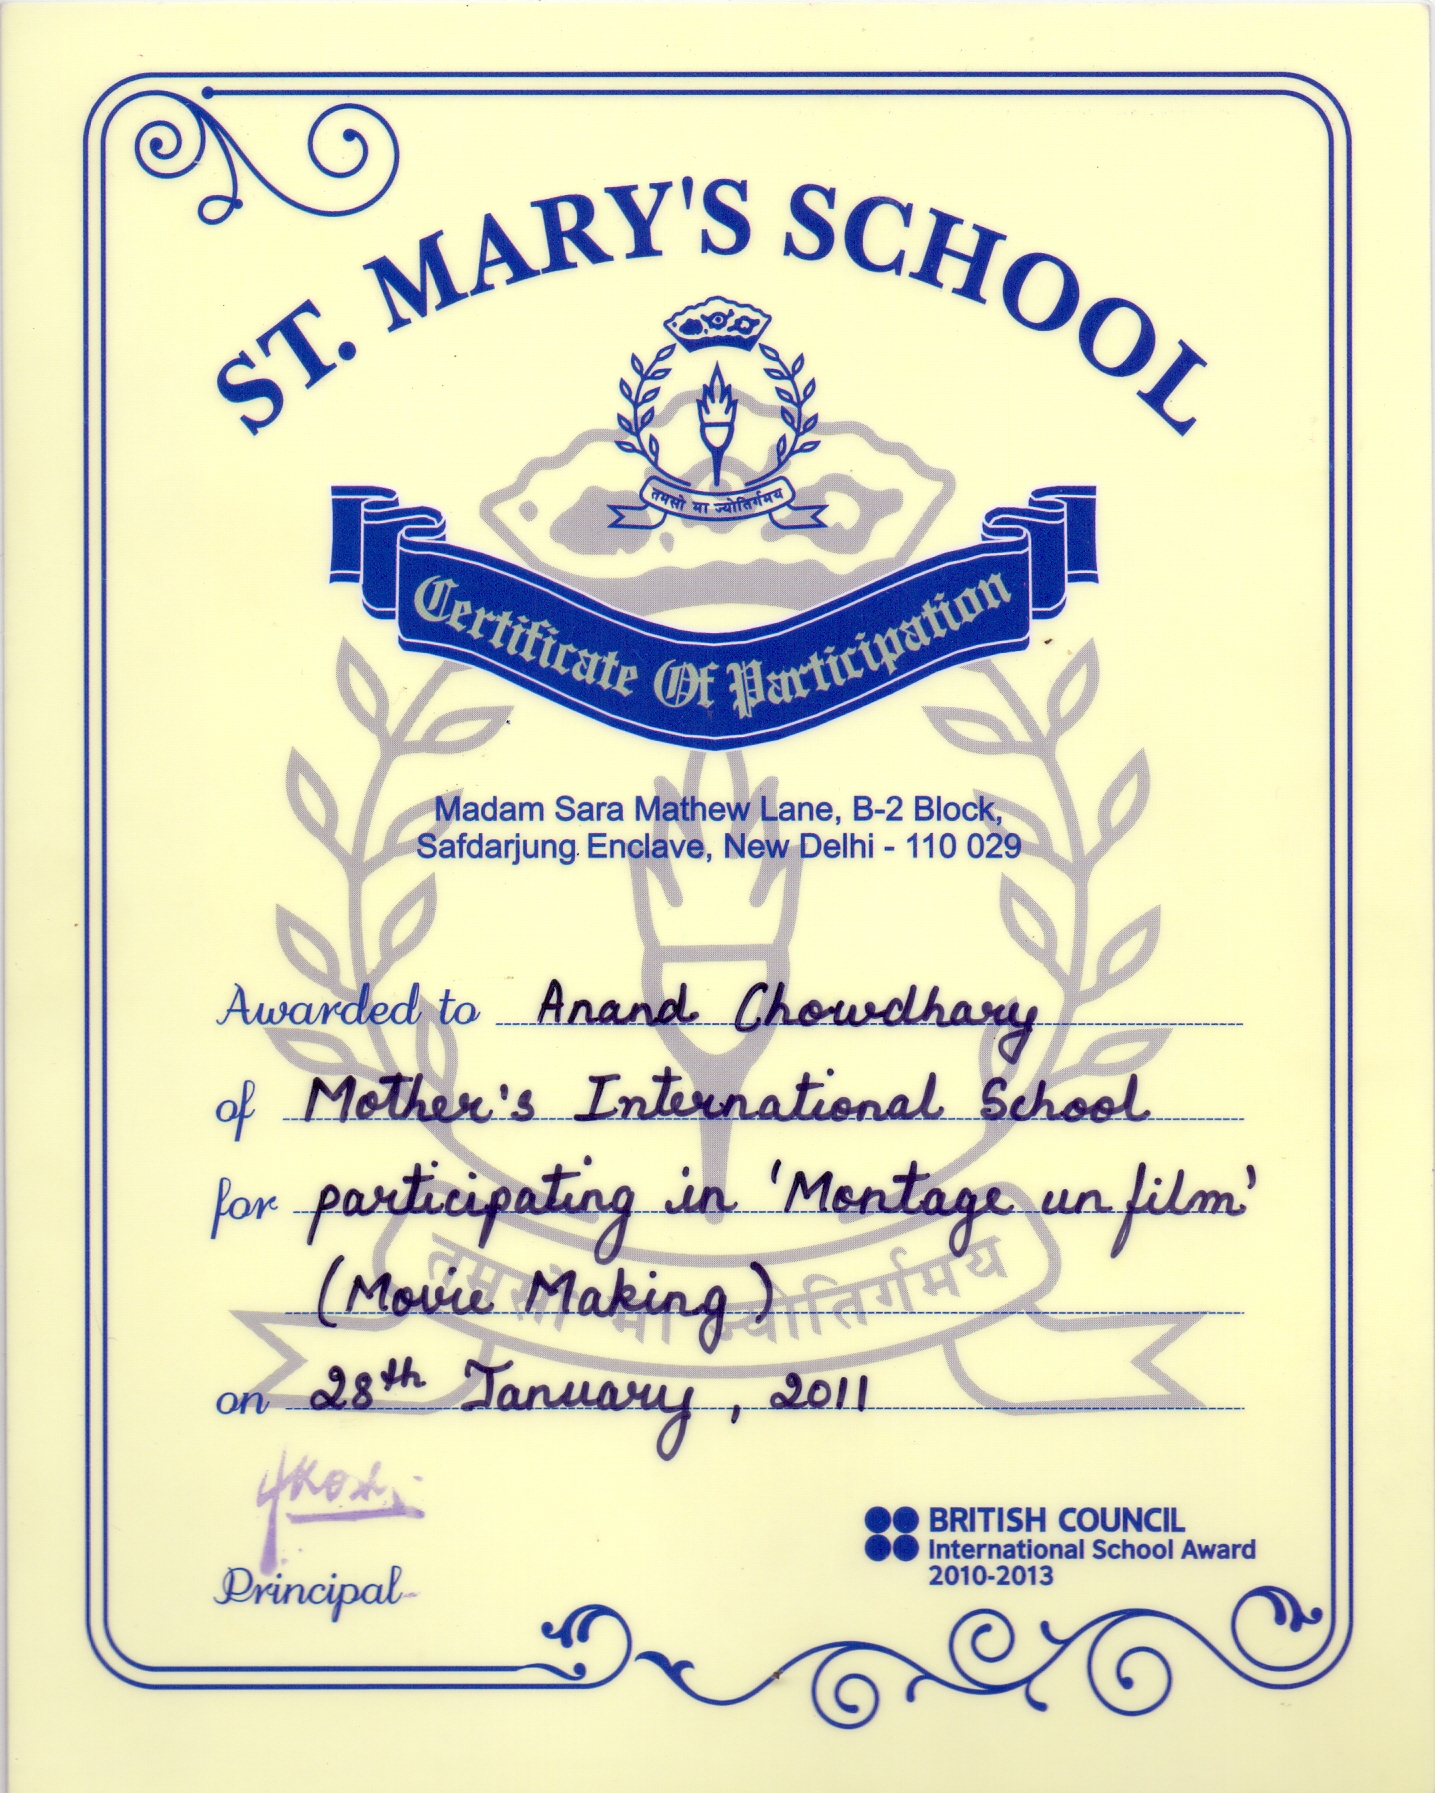 ST. MARY'S SCHOOL
तमसो मा ज्योतिर्गमय
Certificate Of Participation
Madam Sara Mathew Lane, B-2 Block,
Safdarjung Enclave, New Delhi - 110 029
Awarded to Anand Chowdhary
of Mother's International School
for participating in 'Montage un film'
(Movie Making)
तमसो मा ज्योतिर्गमय
on 28th January, 2011
Principal
BRITISH COUNCIL
International School Award
2010-2013